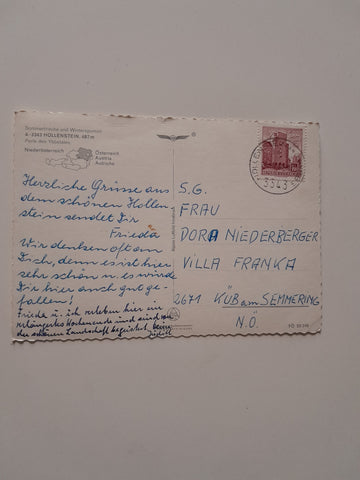 Sommerfrische und Wintersportort
A-3343 HOLLENSTEIN, 487 m
Perle des Ybbstales
Niederösterreich
Österreich
Austria
Autriche
Herzliche Grüsse aus
dem schönen Hollen-
stein sendet Dir
Frieda
Wir denken oft an
Dich, denn es ist hier
sehr schön u. es würde
Dir hier auch gut ge-
fallen!
Frieda u. ich erleben hier ein
verlängertes Wochenende und sind von
der schönen Landschaft begeistert.
S.G.
FRAU
DORA NIEDERBERGER
VILLA FRANKA
2671 KÜB am SEMMERING
N.Ö.
3343